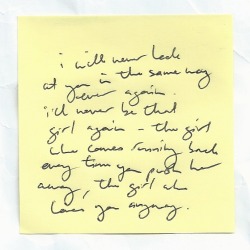 i will never look
at you in the same way
ever again.
i'll never be that
girl again - the girl
who comes running back
every time you push her
away, the girl who
loves you anyway.